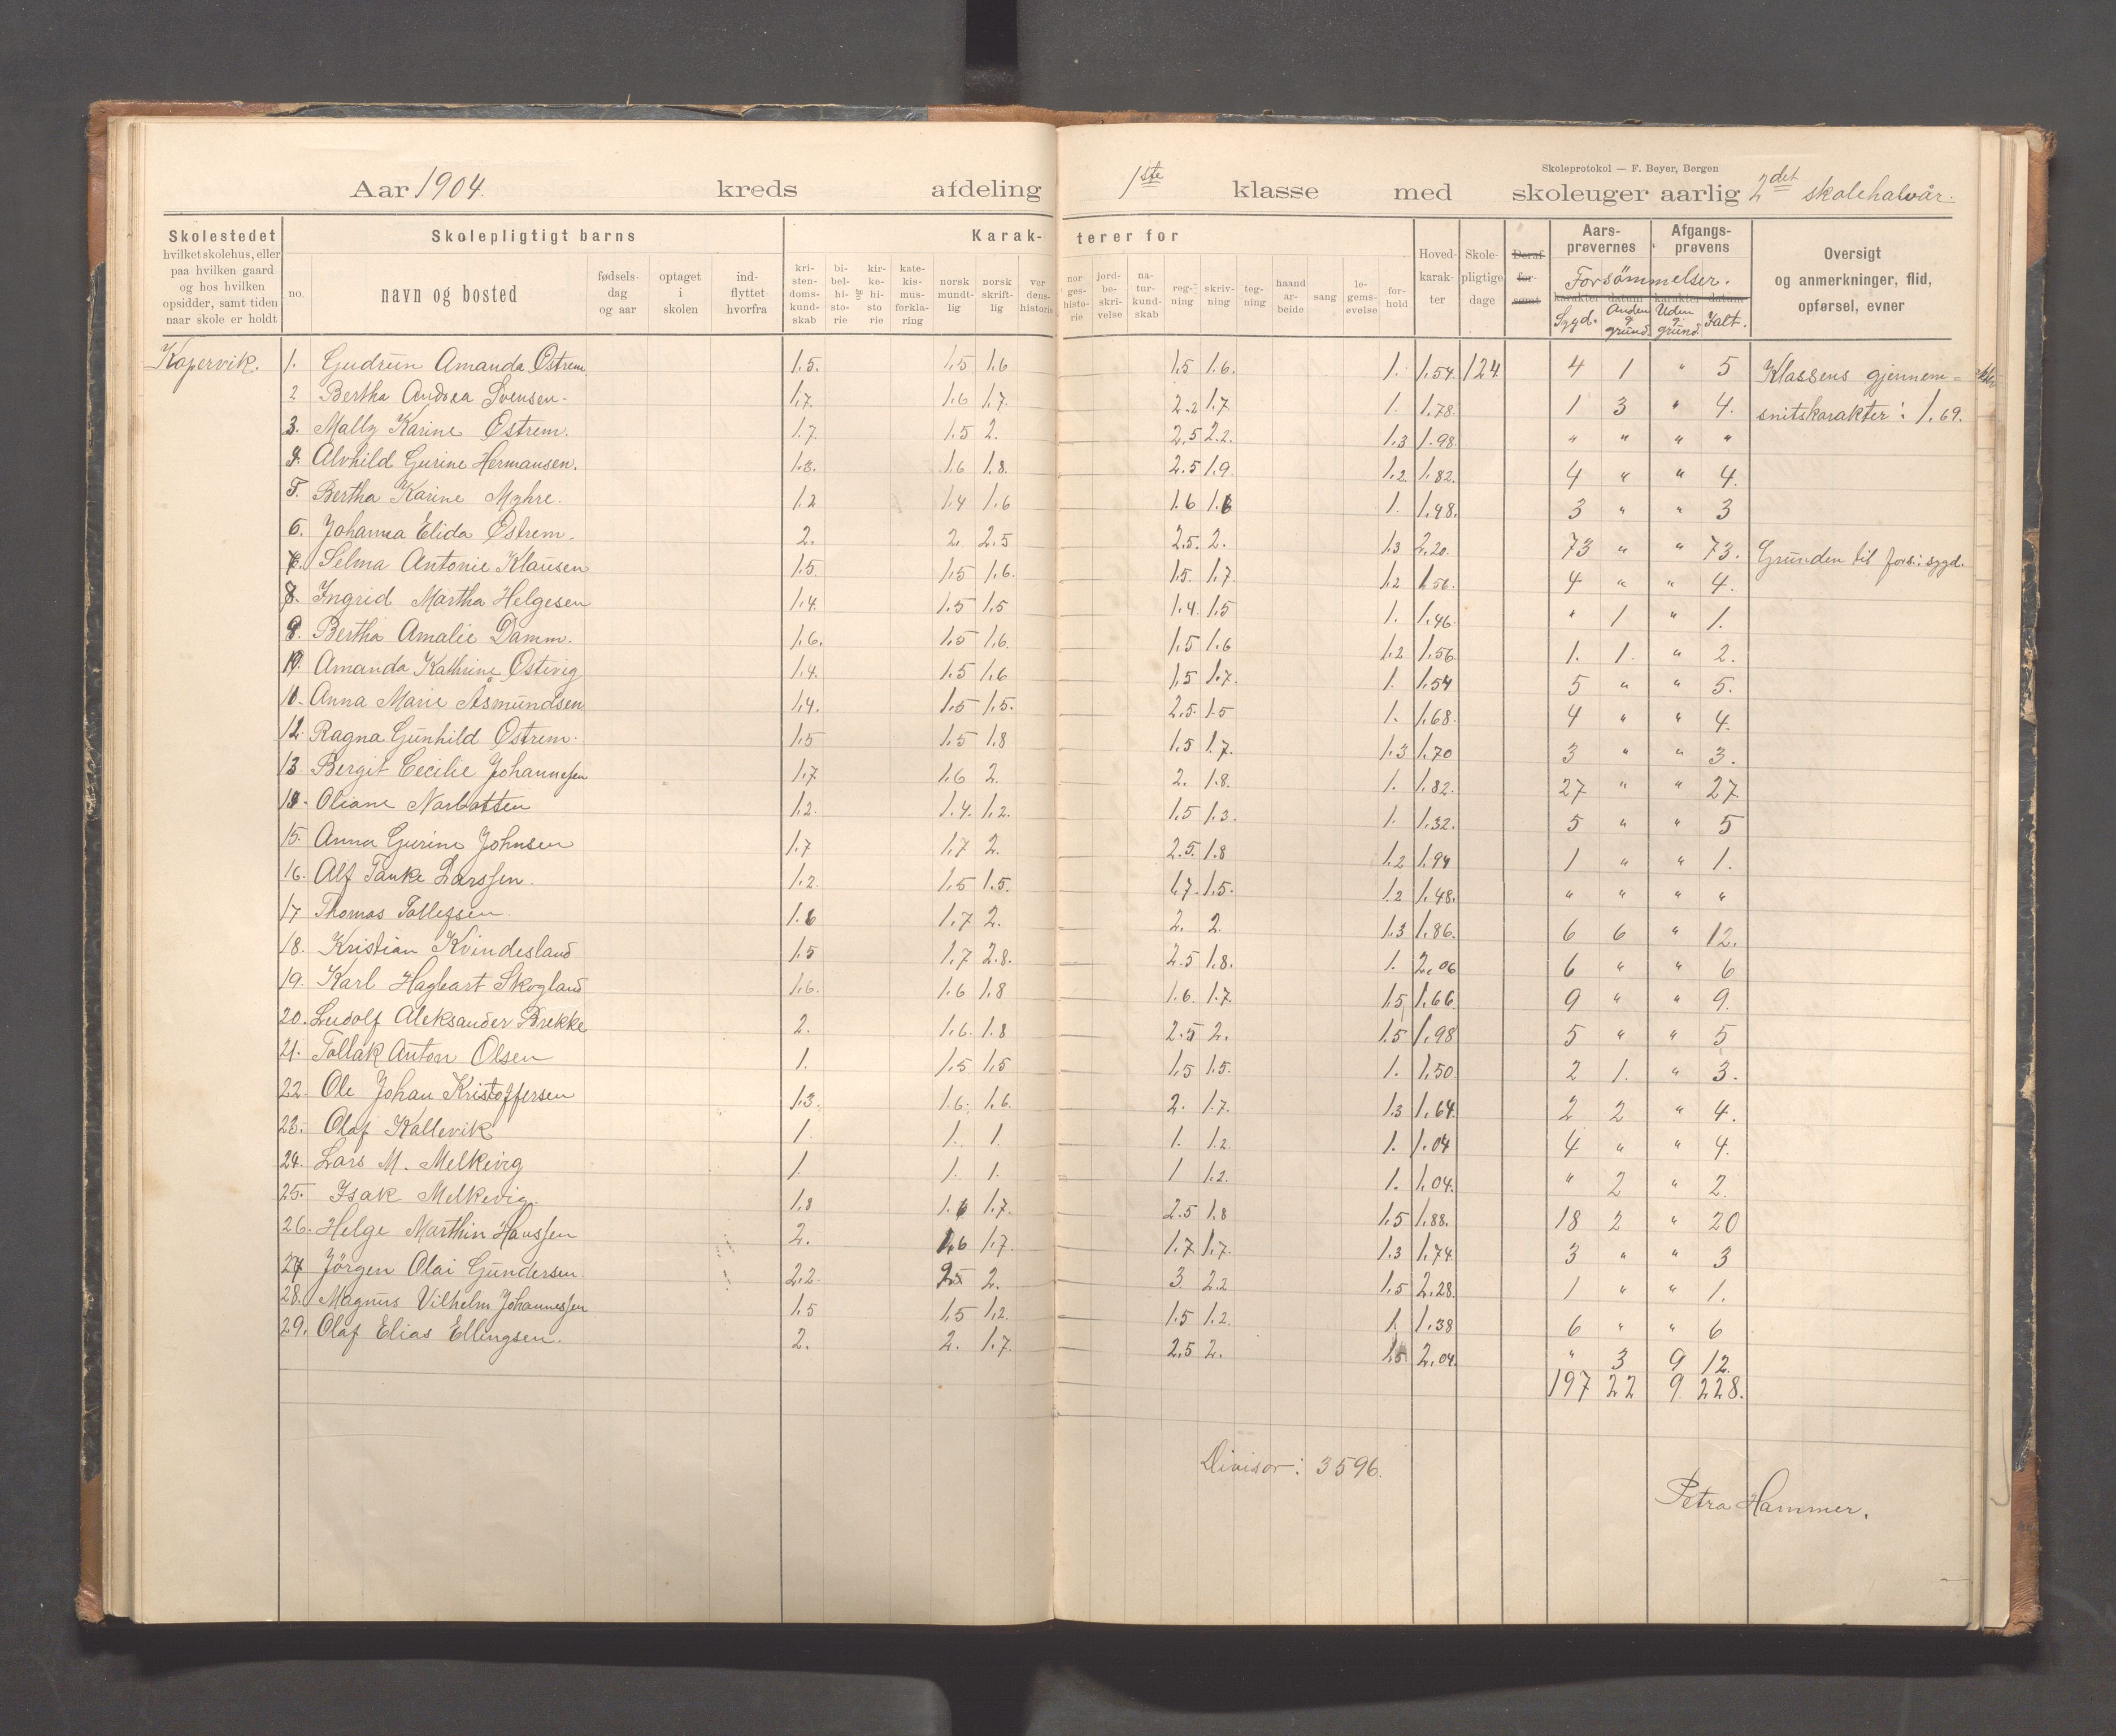 Skoleprotokol — F. Beyer, Bergen
Aar 1904. kreds afdeling 1ste klasse med skoleuger aarlig 2det skolehalvår.
Skolestedet hvilket skolehus, eller paa hvilken gaard og hos hvilken opsidder, samt tiden naar skole er holdt
Skolepligtigt barns
no. navn og bosted fødsels-dag og aar optaget i skolen ind-flyttet hvorfra
Karak-terer for
kri-sten-doms-kund-skab bi-bel-hi-sto-rie kir-ke-hi-sto rie kate-kis-mus-forkla-ring norsk mundt-lig norsk skrift-lig ver dens-historie nor ges-histo-rie jord-be-skri-velse na-tur-kund-skab reg-ning skriv-ning teg-ning haand ar-beide sang le-gems-øvelse for-hold
Hoved-karak-ter Skole-pligtige dage Deraf for-sømt Aars-prøvernes Afgangs-prøvens
Forsömmelser.
karakter datum karakter datum
Sygd. Anden g grund. Uden g. grund. Ialt.
Oversigt og anmerkninger, flid, opførsel, evner
Kopervik. 1. Gudrun Amanda Östrem 1,5. 1,5 1,6 1,5 1,6. 1. 1,54. 124 4 1 " 5 Klassens gjennem=
2 Bertha Andrea Svensen. 1,7. 1,6 1,7. 2.2 1,7. 1. 1,78. 1 3 " 4. snitskarakter: 1,69.
3. Mally Karine Östrem. 1.7. 1.5 2. 2,5 2.2. 1.3 1.98. " " " "
4. Alvhild Gurine Hermansen. 1.8. 1.6 1.8. 2.5 1.9. 1.2. 1.82. 4 " " 4.
5. Bertha Karine Myhre. 1.2 1.4 1.6 1.6 1.6 1. 1.48. 3 " " 3
6. Johanna Elida Östrem. 2. 2. 2.5 2.5. 2. 1.3 2.20. 73 " " 73. Grunden til fors.: sygd.
7. Selma Antonie Klausen 1.5. 1.5 1.6. 1.5. 1.7. 1.2 1.56. 4 " " 4.
8. Ingrid Martha Helgesen 1.4. 1.5 1.5 1.4. 1.5 1. 1.46. " 1 " 1.
9. Bertha Amalie Damm. 1.6. 1.5 1.6. 1.5 1.6 1.2 1.56. 1. 1. " 2.
10. Amanda Kathrine Östevig 1.4. 1.5 1.6 1.5 1.7. 1. 1.54 5 " " 5.
11. Anna Marie Åsmundsen 1.4. 1.5 1.5. 2.5. 1.5 1. 1.68. 4 " " 4.
12. Ragna Gunhild Östrem. 1.5 1.5 1.8 1.5 1.7. 1.3 1.70 3 " " 3.
13. Bergit Cecilie Johannessen 1.7. 1.6 2. 2. 1.8. 1. 1.82. 27 " " 27
14. Oliane 1.2. 1.4. 1.2. 1.5 1.3. 1. 1.32. 5 " " 5
15. Anna Gurine Johnsen 1.7 1.7 2. 2.5. 1.8 1.2 1.94 1 " " 1.
16. Alf Tanke Larssen. 1.2. 1.5 1.5. 1.7. 1.5. 1.2 1.48. " " " "
17 Thomas Tollefsen. 1.6 1.7 2. 2. 2. 1.3 1.86. 6 6 " 12.
18. Kristian Kvindesland 1.5 1.7 2.8. 2.5 1.8. 1. 2,06 6 " " 6
19. Karl Hagbart Skogland 1.6. 1.6 1.8 1.6. 1.7. 1.5 1.66. 9 " " 9.
20. Ludolf Aleksander Brekke 2. 1.6. 1.8 2.5 2. 1.5 1,98 5 " " 5
21. Tollak Anton Olsen 1. 1.5 1.5 1.5 1.5. 1. 1.50. 2 1. " 3.
22. Ole Johan Kristoffersen 1.3. 1.6. 1.6. 2. 1.7. 1.3 1.64. 2 2 " 4.
23. Olaf Kallevik 1. 1. 1. 1. 1.2. 1. 1.04 4 " " 4.
24. Lars M. Melkevig 1. 1. 1. 1 1.2. 1. 1.04. " 2 " 2.
25. Isak Melkevig. 1.8 1.6 1.7. 2.5 1.8 1.5 1.88. 18 2 " 20
26. Helge Marthin Hanssen 2. 1.6 1.7. 1.7 1.7. 1.3 1.74. 3 " " 3
27 Jörgen Olai Gundersen. 2.2. 2.5 2. 3 2.2 1.5 2.28. 1 " " 1.
28. Magnus Vilhelm Johannessen 1.5 1.5 1.2. 1.5 1.2. 1. 1.38 6 " " 6
29. Olaf Elias Ellingsen. 2. 2. 1.7. 2.5 2. 1.5 2,04. " 3 9 12.
197 22 9 228.
Divisor: 3596.
Petra Hammer.